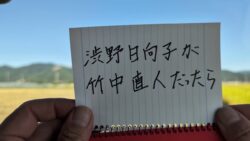 渋野日向子が
竹中直人だったら